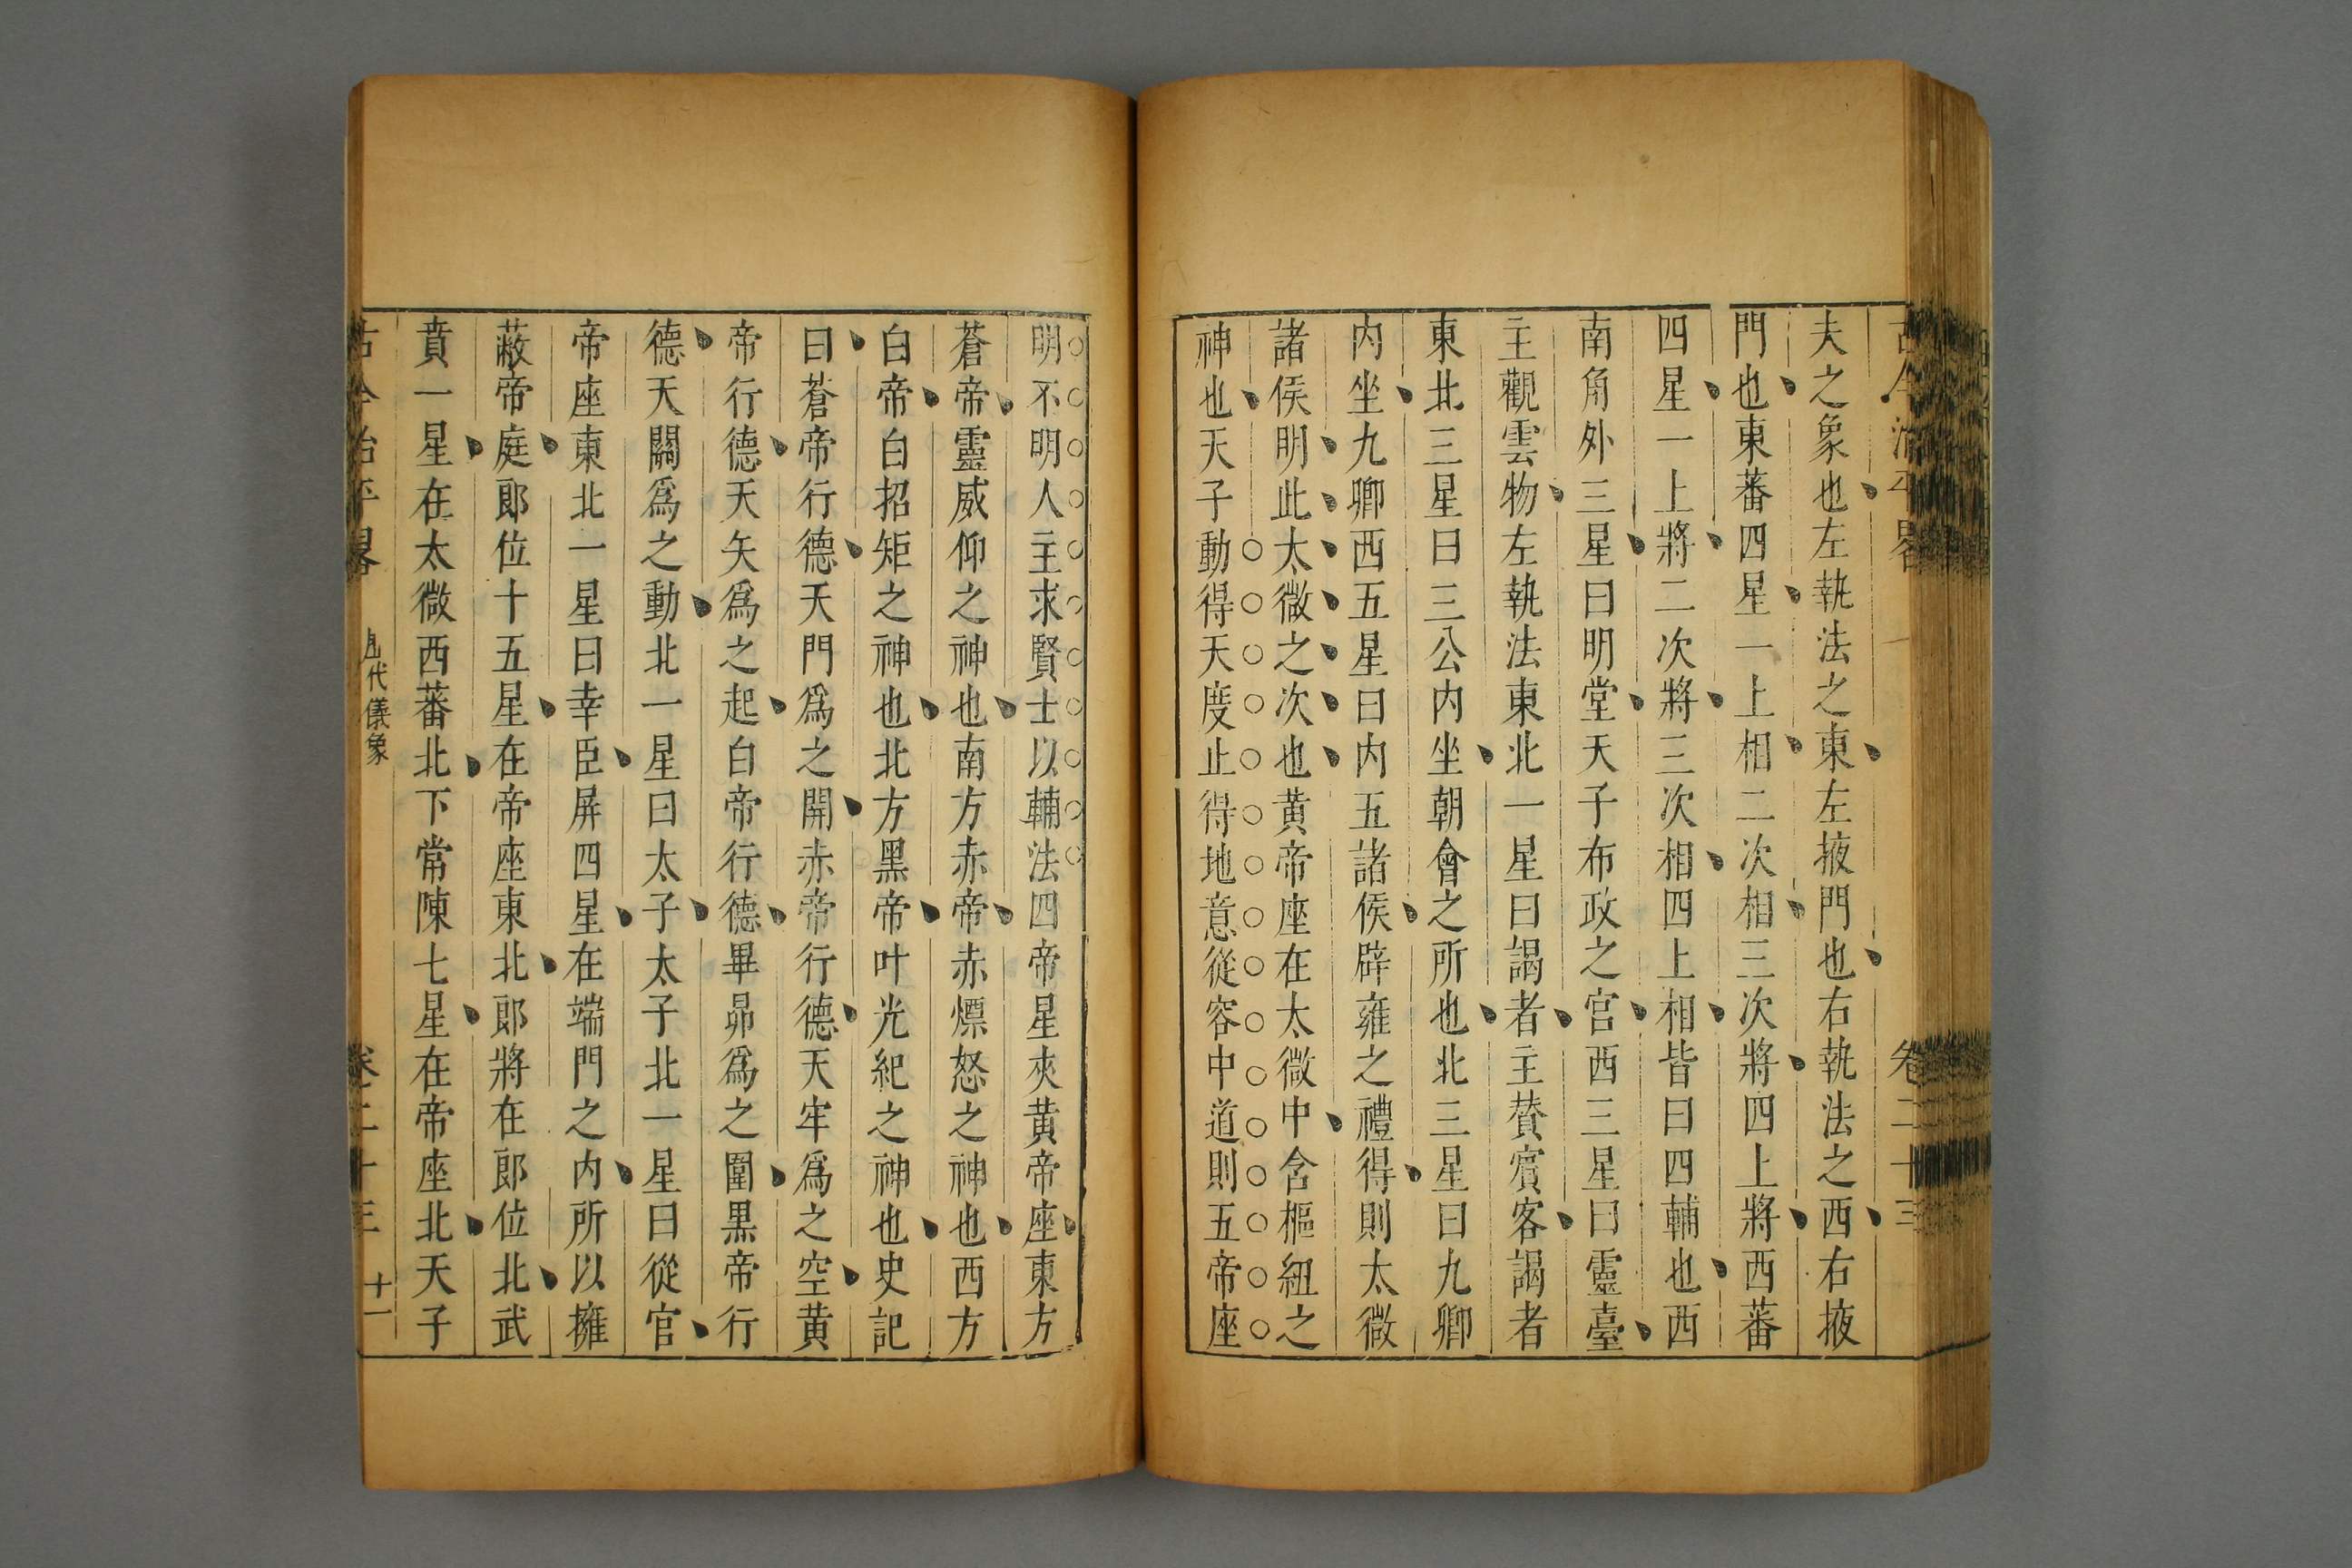 古今治平畧 卷二十三
夫之象也左執法之東左掖門也右執法之西右掖
門也東蕃四星一上相二次相三次將四上將西蕃
四星一上將二次將三次相四上相皆曰四輔也西
南角外三星曰明堂天子布政之官西三星曰靈臺
主觀雲物左執法東北一星曰謁者主賛賓客謁者
東北三星曰三公内坐朝會之所也北三星曰九卿
内坐九卿西五星曰内五諸侯辟雍之禮得則太微
諸侯明此太微之次也黃帝座在太微中含樞紐之
神也天子動得天度止得地意從容中道則五帝座
明不明人主求賢士以輔法四帝星夾黃帝座東方
蒼帝靈威仰之神也南方赤帝赤熛怒之神也西方
白帝白招矩之神也北方黑帝叶光紀之神也史記
曰蒼帝行德天門爲之開赤帝行德天牢爲之空黃
帝行德天矢爲之起白帝行德畢昴爲之圍黑帝行
德天關爲之動北一星曰太子太子北一星曰從官
帝座東北一星曰幸臣屏四星在端門之内所以擁
蔽帝庭郎位十五星在帝座東北郎將在郎位北武
賁一星在太微西蕃北下常陳七星在帝座北天子
古今治平畧 代儀象 卷二十三 十一